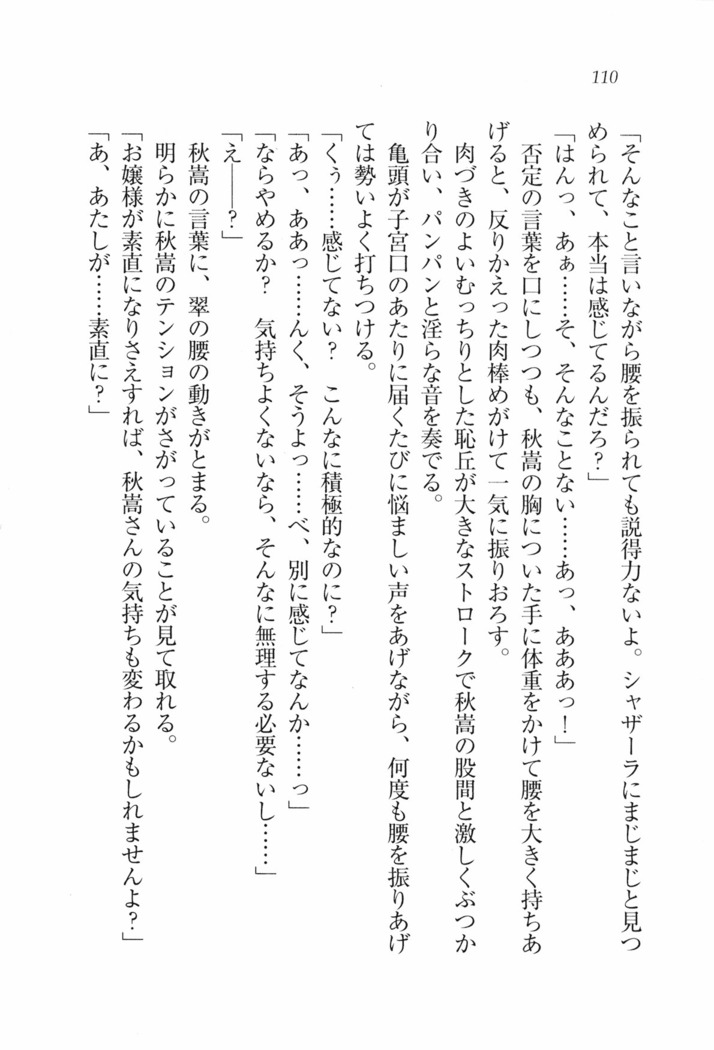 110
「そんなこと言いながら腰を振られても説得力ないよ。シャザーラにまじまじと見つ
められて、本当は感じてるんだろ？」
「はんっ、あぁ……そ、そんなことない……あっ、あああっ！」
否定の言葉を口にしつつも、秋嵩の胸についた手に体重をかけて腰を大きく持ちあ
げると、反りかえった肉棒めがけて一気に振りおろす。
肉づきのよいむっちりとした恥丘が大きなストロークで秋嵩の股間と激しくぶつか
り合い、パンパンと淫らな音を奏でる。
亀頭が子宮口のあたりに届くたびに悩ましい声をあげながら、何度も腰を振りあげ
ては勢いよく打ちつける。
「くぅ……感じてない？　こんなに積極的なのに？」
「あっ、ああっ……んく、そうよっ……べ、別に感じてなんか……っ」
「ならやめるか？　気持ちよくないなら、そんなに無理する必要ないし……」
「え――？」
秋嵩の言葉に、翠の腰の動きがとまる。
明らかに秋嵩のテンションがさがっていることが見て取れる。
「お嬢様が素直になりさえすれば、秋嵩さんの気持ちも変わるかもしれませんよ？」
「あ、あたしが……素直に？」